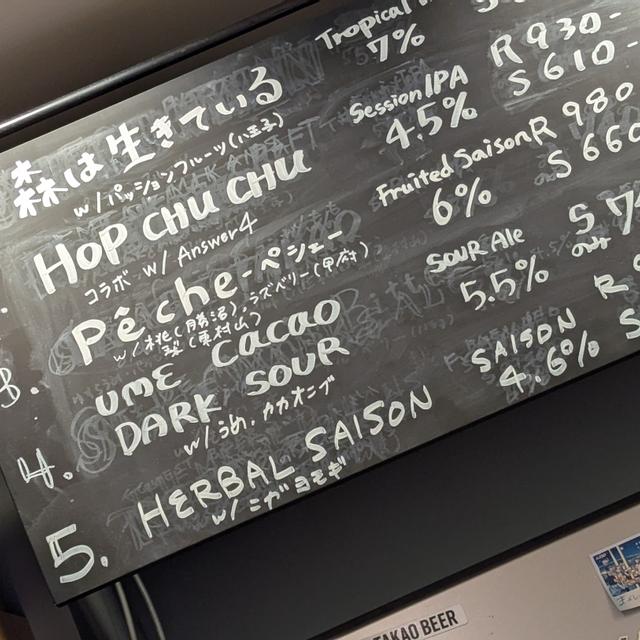 森は生きている
w/パッションフルーツ(八王子)
Tropical
7%
HOP CHU CHU
コラボ w/ Answer4
Session IPA
4.5%
R 930-
S 610-
3.
Pêche-ペシェー
w/桃(勝沼)、ラズベリー(甲府)
梨(東村山)
Fruited Saison
6%
R 980
S 660
4.
UME CACAO
DARK SOUR
w/うめ、カカオニブ
SOUR Ale
5.5%
S
out
5.
HERBAL SAISON
w/ニガヨモギ
SAISON
4.6%
R
S
TAKAO BEER